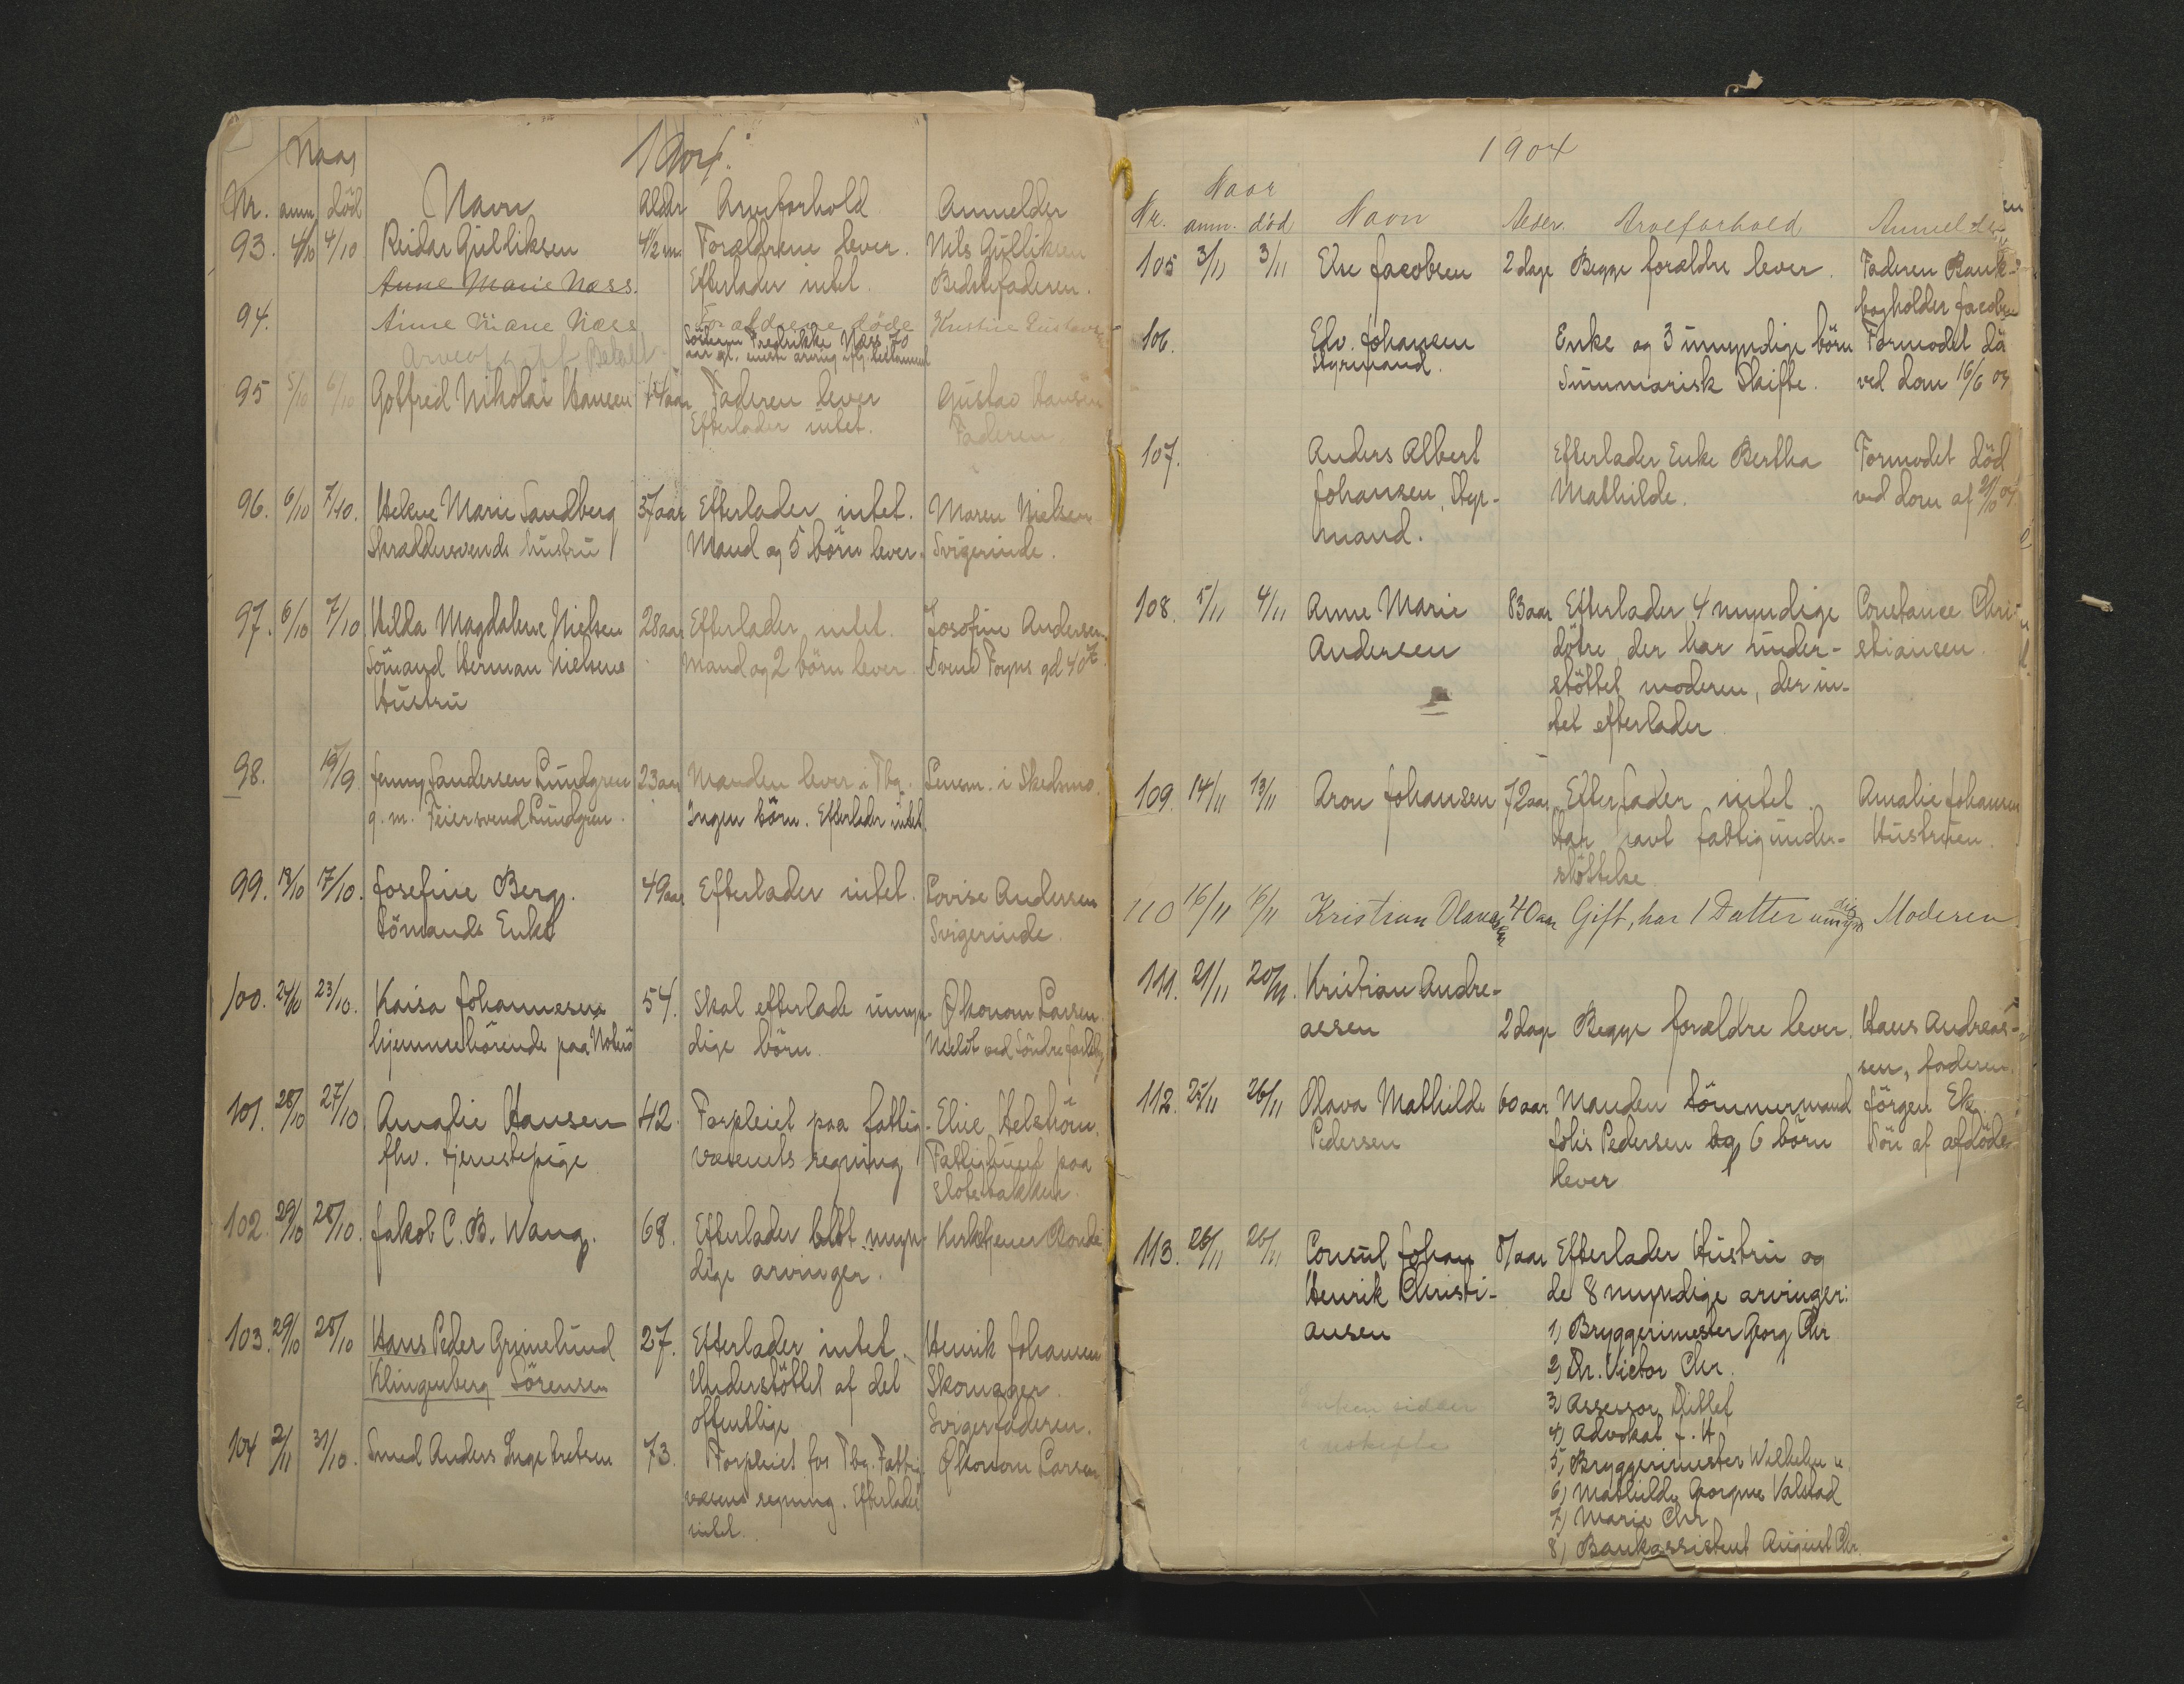 1904.
Naar
Nr. anm. död Navn Alder Arveforhold Anmelder
93. 4/10 4/10 Reidar Gulliksen 4½ m. Forældrene lever. Nils Gulliksen
Anne Marie Næss. Efterlader intet. Bedstefaderen.
94. Anne Marie Næss Forældrene døde Kristine
Søsteren Fredrikke Næss 70
Betalt aar gl. eneste arving iflg. testament
95 5/10 6/10 Gotfred Nikolai Hansen Faderen lever Gustav Hansen
Efterlader intet. Faderen
96. 6/10 7/10. Helene Marie Sandberg 37 aar Efterlader intet. Maren Nielsen
Skræddersvends hustru Mand og 5 börn lever. Svigerinde.
97. 6/10 7/10 Hilda Magdalene Nielsen 28 aar Efterlader intet. Josefine Andersen
Sömand Herman Nielsens Mand og 2 börn lever Svend Foyns gd 40
Hustru
98. 19/9 Jenny Sandersen Lundgren 23 aar Manden lever i Tbg. Lensm. i Skedsmo.
g. m. Feiersvend Lundgren. Ingen börn. Efterlader intet.
99. 19/10 17/10. Josefine Berg. 49 aar Efterlader intet. Lovise Andersen
Sömands Enke Svigerinde.
100. 24/10 23/10. Kaisa Johannesen 54. Skal efterlade umyn- Økonom Larsen.
hjemmehörende paa Nöterö dige börn. Meldt ved Söndre
101. 28/10 27/10 Amalie Hansen 42. Forpleiet paa fattig- Elise Helström.
fhv. tjenestepige væsenets regning Fattighuset paa
Slotsbakken.
102. 29/10 28/10. Jakob C. B. Wang. 68. Efterlader blot myn- Kirketjener Bonde.
dige arvinger.
103. 29/10 28/10 Hans Peder Grimelund 27. Efterlader intet. Henrik Johansen
Klingenberg Sörensen Understöttet af det Skomager.
offentlige Svigerfaderen.
104 2/11 31/10. Smed Anders Ingebretsen 73. Forpleiet for Tbg. Fattig- Økonom Larsen
væsens regning. Efterlader
intet.
1904
Naar
Nr. anm. död Navn Alder. Arveforhold Anmelder
105 3/11 3/11 Else Jacobsen 2 dage Begge forældre lever. Faderen Bank-
bogholder Jacobsen
106. Edv. Johansen Enke og 3 umyndige börn Formodet dö
Styrmand. Summarisk Skifte. ved dom 16/6 04
107. Anders Albert Efterlader Enke Bertha Formodet död
Johansen, Styr- Mathilde. ved dom af 21/10 04.
mand.
108. 5/11 4/11 Anne Marie 83 aar Efterlader 4 myndige Constance Chri-
Andersen dötre, der har under- stiansen.
stöttet moderen, der in-
tet efterlader
109. 14/11 13/11 Aron Johansen 72 aar Efterlader intet. Amalie Johansen
Har havt fattigunder- Hustruen.
stöttelse
110 16/11 16/11 Kristian Olavesen 40 aar Gift, har 1 Datter umyndig Moderen
111. 21/11 20/11. Kristian Andre-
asen 2 dage Begge forældre lever. Hans Andreas-
sen, faderen.
112. 25/11 26/11 Olava Mathilde 60 aar Manden tömmermand Jörgen Ek
Pedersen Johs Pedersen og 6 börn Sön af afdöde
lever
113. 26/11 26/11 Consul Johan 81 aar Efterlader Hustru og
Henrik Christi- de 8 myndige arvinger:
ansen 1) Bryggerimester Georg Chr
2) Dr. Victor Chr.
Enken sidder 3) Assessor Ditlef
i uskifte 4) Advokat J. H.
5) Bryggerimester Wilhelm
6) Mathilde Georgine Valstad
7) Marie Chr
8) Bankassistent August Chr.